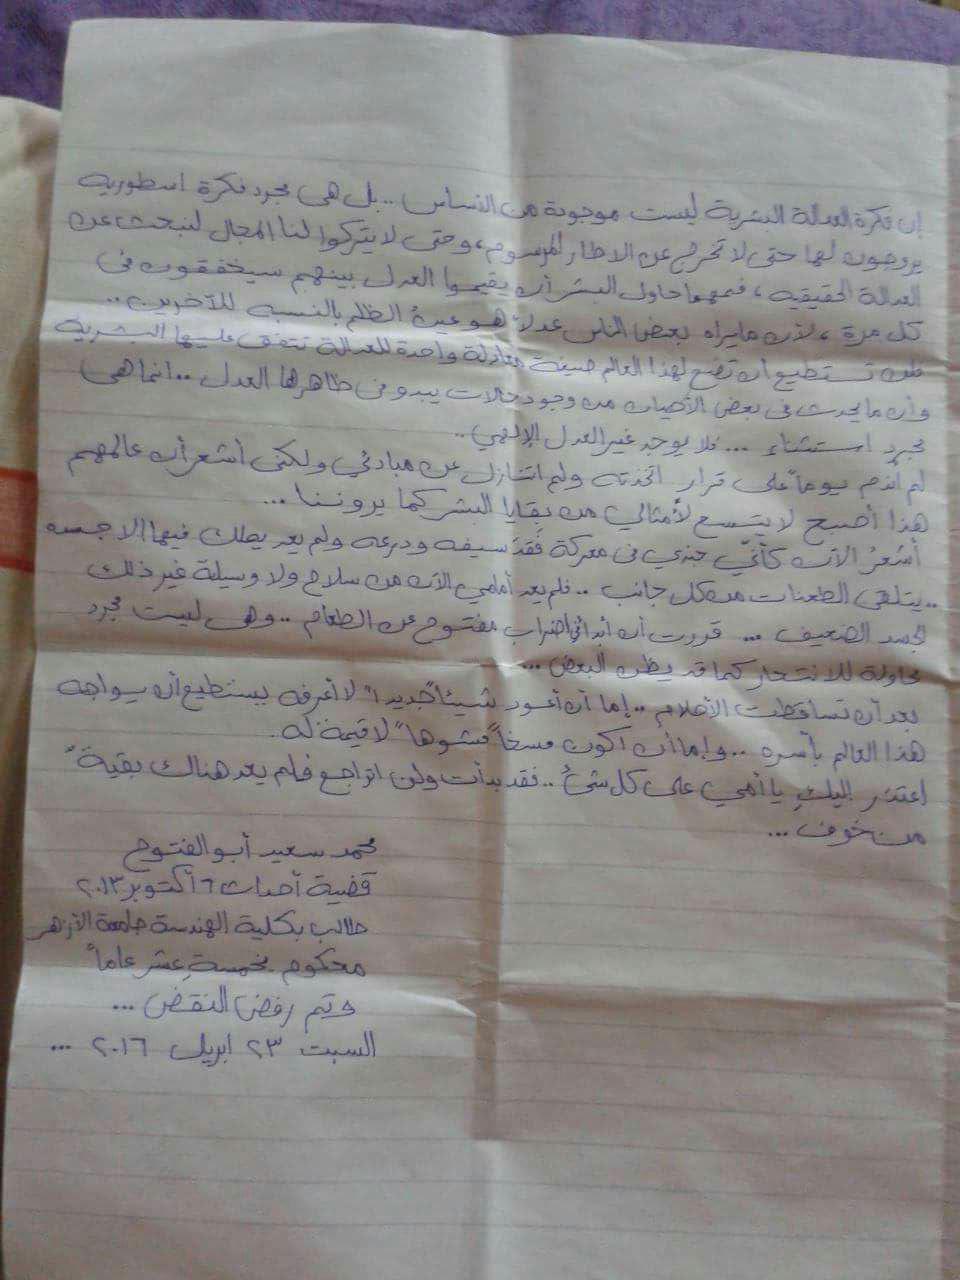 إن فكرة العدالة البشرية ليست موجودة من الأساس .. بل هى مجرد فكرة اسطورية
يروجون لها حتى لا نخرج عن الاطار المرسوم، وحتى لا يتركوا لنا المجال لنبحث عن
العدالة الحقيقية ، فمهما حاول البشر أن يقيموا العدل بينهم سيخفقون فى
كل مرة ، لأن مايراه بعض الناس عدلاً هو عينُ الظلم بالنسبه للآخرين ...
فلن تستطيع أن تضع لهذا العالم صيغة معادلة واحدة للعدالة تتفق عليها البشرية
وأن ما يحدث فى بعض الأحيان من وجود حالات يبدو فى ظاهرها العدل .. انما هى
مجرد استثناء ... فلا يوجد غير العدل الإلهي ..
لم أندم يوماً على قرار اتخذته ولم اتنازل عن مبادئي ولكنى أشعر أن عالمهم
هذا أصبح لا يتسع لأمثالي من بقايا البشر كما يروننا ...
أشعرُ الآن كأنّي جندي فى معركة فَقَدَ سيفه ودرعه ولم يعد يملك فيها إلا جسده
.. يتلقى الطعنات من كل جانب .. فلم يعد أمامي الآن من سلاح ولا وسيلة غير ذلك
الجسد الضعيف ... قررت أن أبدأ فى اضراب مفتوح عن الطعام .. وهى ليست مجرد
محاولة للانتحار كما قد يظن البعض ...
بعد أن تساقطت الأحلام .. إما أن أعود شيئاً جديداً لا أعرفه يستطيع أن يواجه
هذا العالم بأسره .. وإما أن اكون مسخاً مشوهاً لا قيمة له .
اعتذر إليكِ يا أمي على كل شئ .. فقد بدأت ولن اتراجع فلم يعد هناك بقيةً
من خوف ...
محمد سعيد أبو الفتوح
قضية أحداث ٦ أكتوبر ٢٠١٣
طالب بكلية الهندسة جامعة الأزهر
محكوم بخمسةِ عشر عاماً
وتم رفض النقض ...
السبت ٢٣ ابريل ٢٠١٦ ...